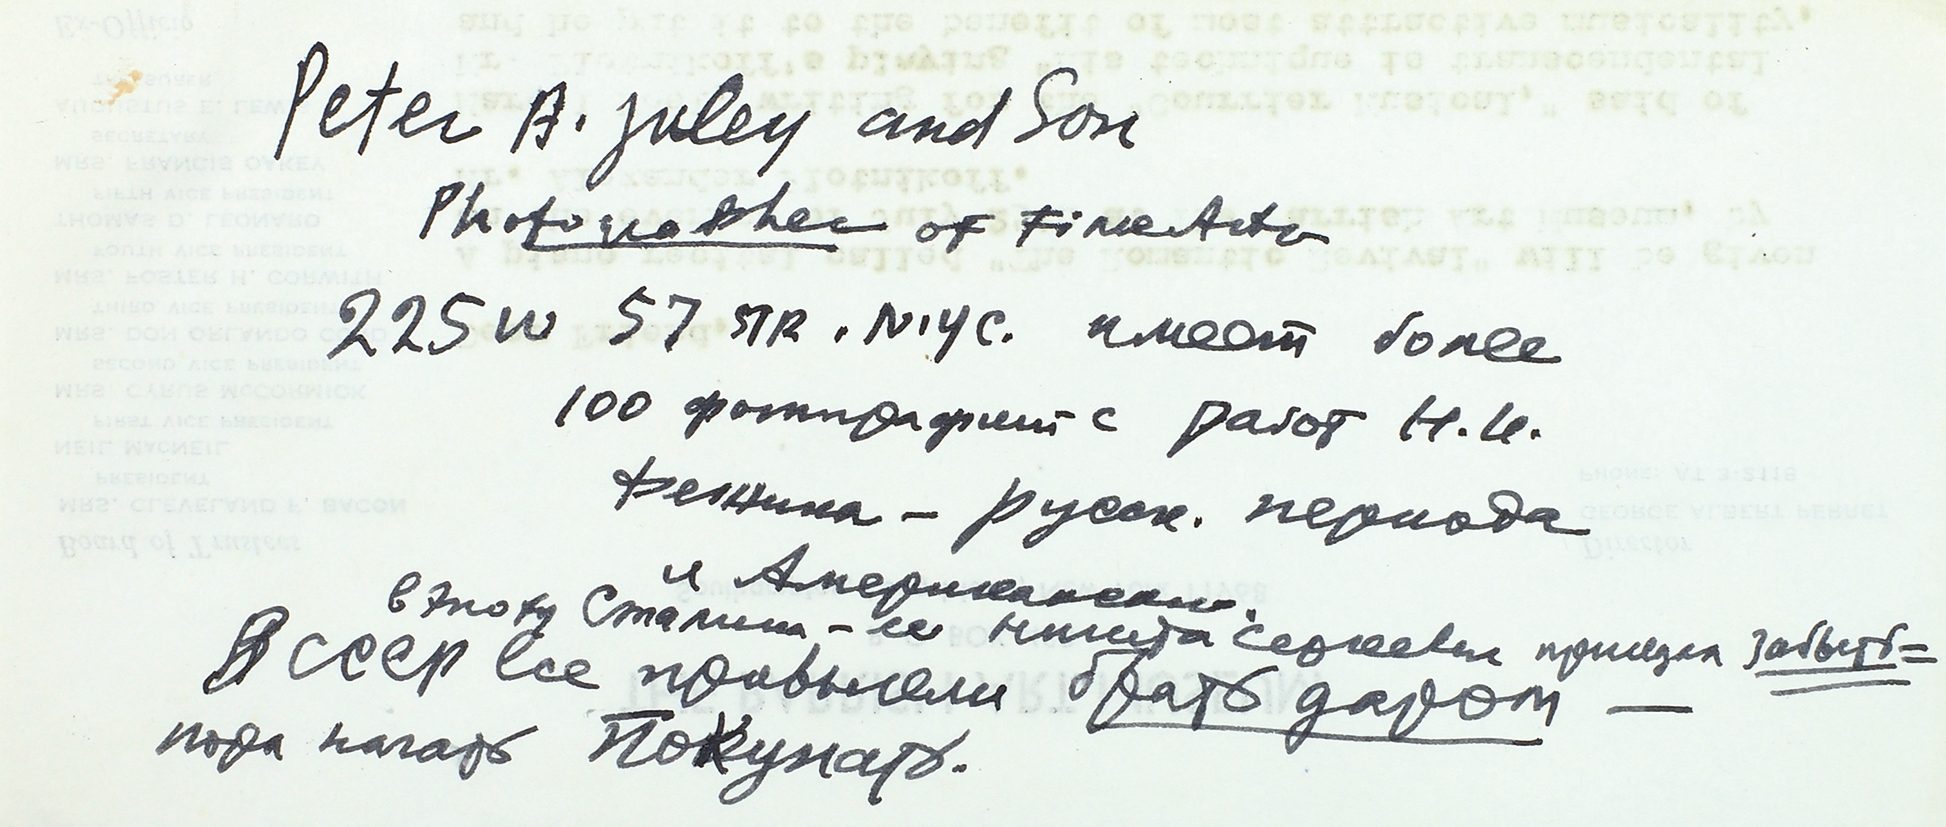 Peter A. Juley and Son
Photographer of Fine Arts
225 W 57 STR. N.Y.C. имеет более
100 фотографий с работ Н.И.
Фешина – русск. периода
и Американскаго.
в эпоху Сталина – ее Никита Сергеевич забыть =
В СССР все привыкли брать даром —
пора начать Покупать.